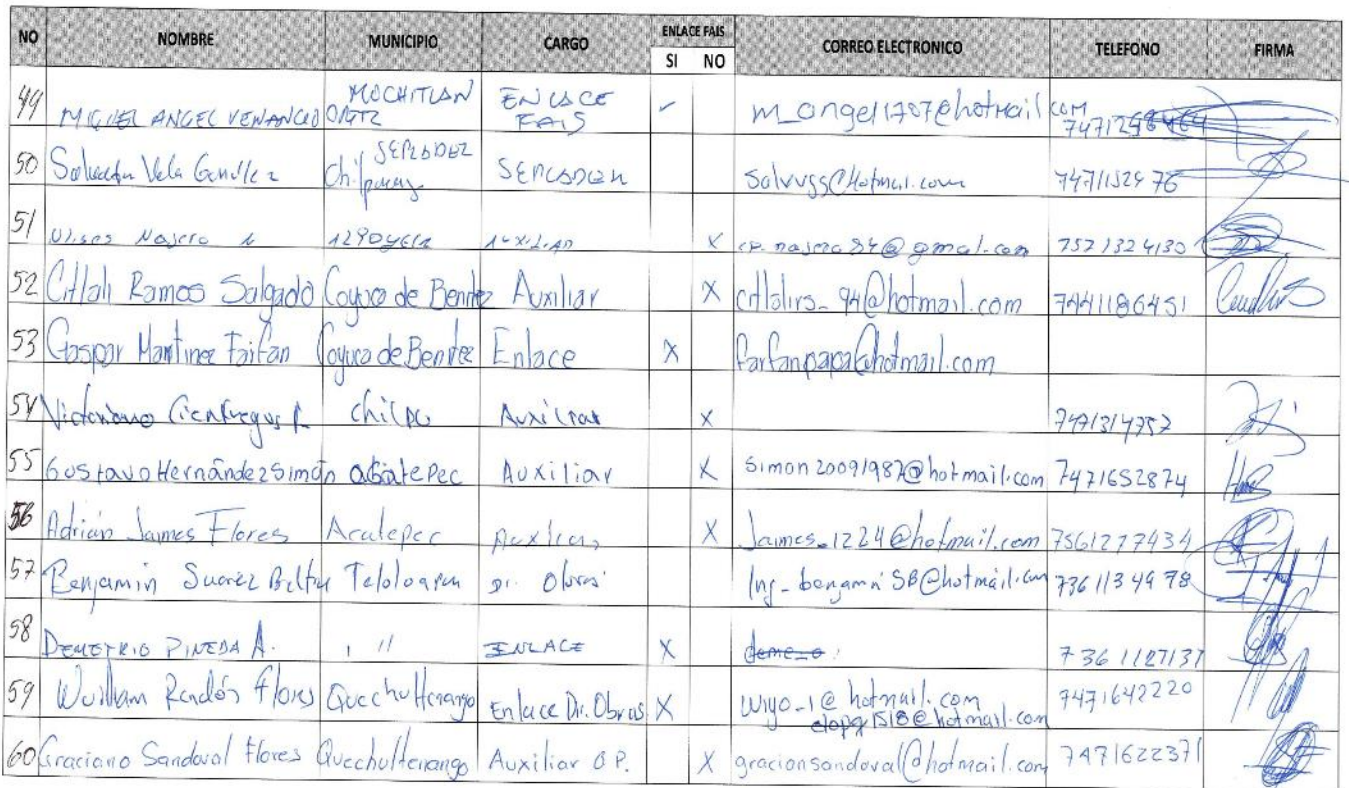 NO NOMBRE MUNICIPIO CARGO ENLACE FAIS SI NO CORREO ELECTRONICO TELEFONO FIRMA
49 MIGUEL ANGEL VENANCIO ORTZ MOCHITLAN ENLACE FAIS m_angel1707@hotmail.com 7471298464
50 Salvador Vela Chilpancing SEPLADEZ 7471152976
51 Ulises Najera AUXILIAR X 7571324130
52 Citlali Ramos Salgado Coyuca de Benitez Auxiliar X citlalirs_94@hotmail.com 7441186451
53 Gaspar Martinez Farfan Coyuca de Benitez Enlace X farfanpapa@hotmail.com
54 Victoriano Cienfuegos chilpo Auxiliar X 7471314757
55 Gustavo Hernández Simón acatepec Auxiliar X Simon20091987@hotmail.com 7471652874
56 Adrián Jaimes Flores Acatepec Auxiliar X Jaimes_1224@hotmail.com 7561277434
57 Benjamin Suarez Teloloapan Dr. Obras Ing_benjaminSB@hotmail.com 7361134978
58 DEMETRIO PINEDA A. , 11 ENLACE X 7361127137
59 Wuilliam Rendón Flores Quechultenango Enlace Dir. Obras X wiyo_1@hotmail.com 7471642220
60 Graciano Sandoval Flores Quechultenango Auxiliar O P. X gracionsandoval@hotmail.com 7471622371